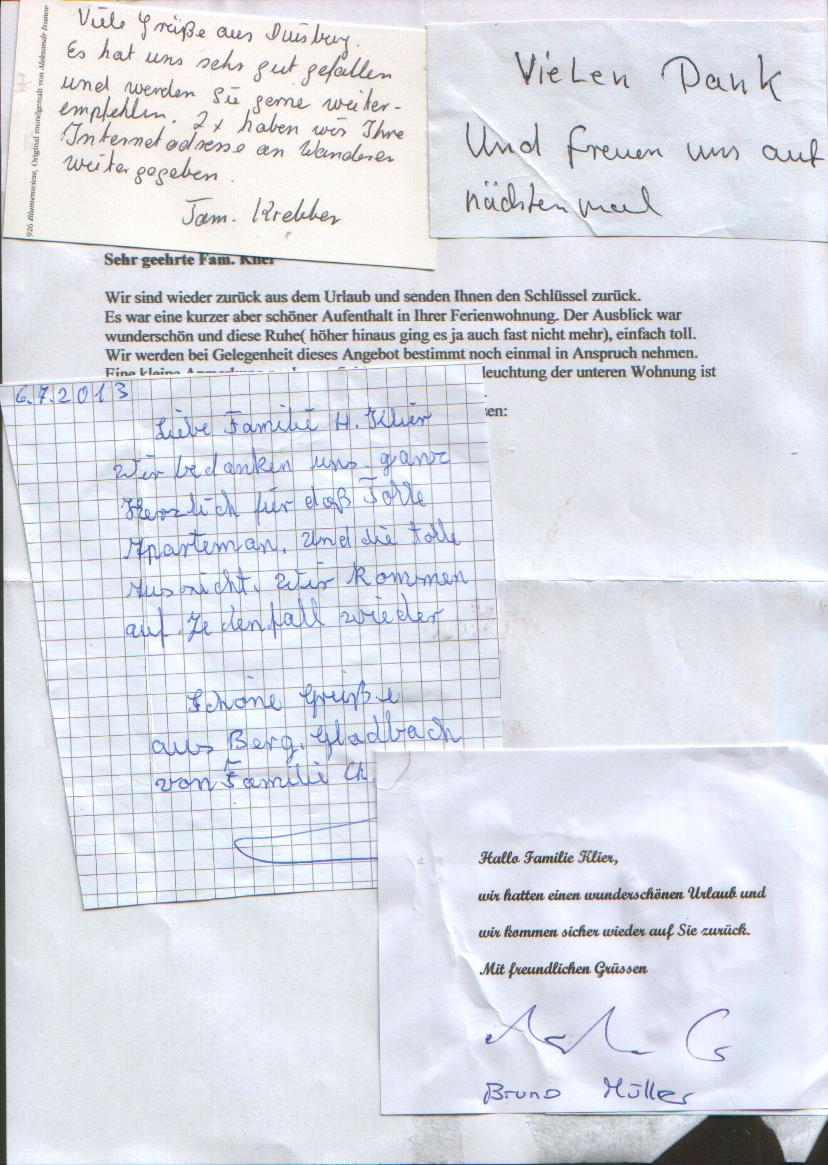 Viele Grüße aus Duisburg.
Es hat uns sehr gut gefallen
und werden Sie gerne weiter-
empfehlen. 2x haben wir Ihre
Internetadresse an Wanderer
weitergegeben.
Fam. Krebber
926 Blumenwiese, Original mundgemalt von Aleksandr Ivanov
Vielen Dank
Und freuen uns auf
nächsten mal
Sehr geehrte Fam. Klier
Wir sind wieder zurück aus dem Urlaub und senden Ihnen den Schlüssel zurück.
Es war eine kurzer aber schöner Aufenthalt in Ihrer Ferienwohnung. Der Ausblick war
wunderschön und diese Ruhe( höher hinaus ging es ja auch fast nicht mehr), einfach toll.
Wir werden bei Gelegenheit dieses Angebot bestimmt noch einmal in Anspruch nehmen.
Eine kleine leuchtung der unteren Wohnung ist
en:
6.7.2013
Liebe Familie H. Klier
Wir bedanken uns ganz
Herzlich für daß Tolle
Aparteman. Und die tolle
Aussicht. Wir kommen
auf Jedenfall wieder
Schöne Grüße
aus Berg. Gladbach
von Familie Ch.
Hallo Familie Klier,
wir hatten einen wunderschönen Urlaub und
wir kommen sicher wieder auf Sie zurück.
Mit freundlichen Grüssen
Bruno Müller